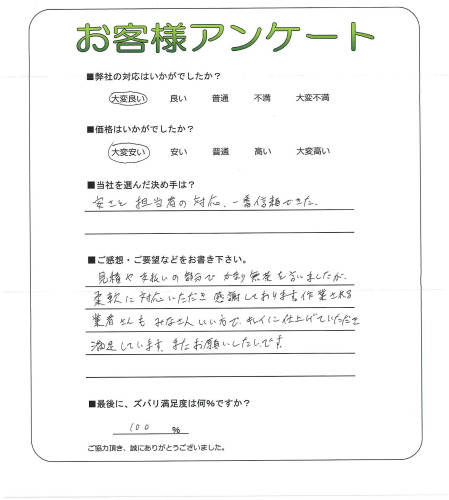 お客様アンケート
■弊社の対応はいかがでしたか？
大変良い 良い 普通 不満 大変不満
■価格はいかがでしたか？
大変安い 安い 普通 高い 大変高い
■当社を選んだ決め手は？
安さと 担当者の対応. 一番信頼できた.
■ご感想・ご要望などをお書き下さい。
見積や支払いの部分で かなり無理を言いましたが、
柔軟に対応いただき 感謝しております。作業される
業者さんも みなさんいい方で、キレイに仕上げていただき
満足しています。またお願いしたいです。
■最後に、ズバリ満足度は何%ですか？
100 %
ご協力頂き、誠にありがとうございました。